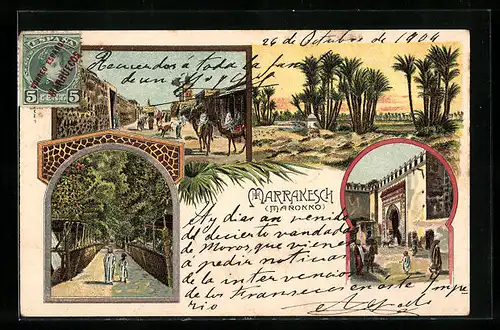 ESPAÑA
CORREO ESPAÑOL
MARRUECOS
5 5
26 de Octubre de 1904
Recuerdos á toda la fam
de un
MARRAKESCH
(MAROKKO)
Ay dias an venido
del decierto vandadas
de Moros, que vienen
á pedir noticias
de la intervencion
de los Franseces en este Impe-
rio